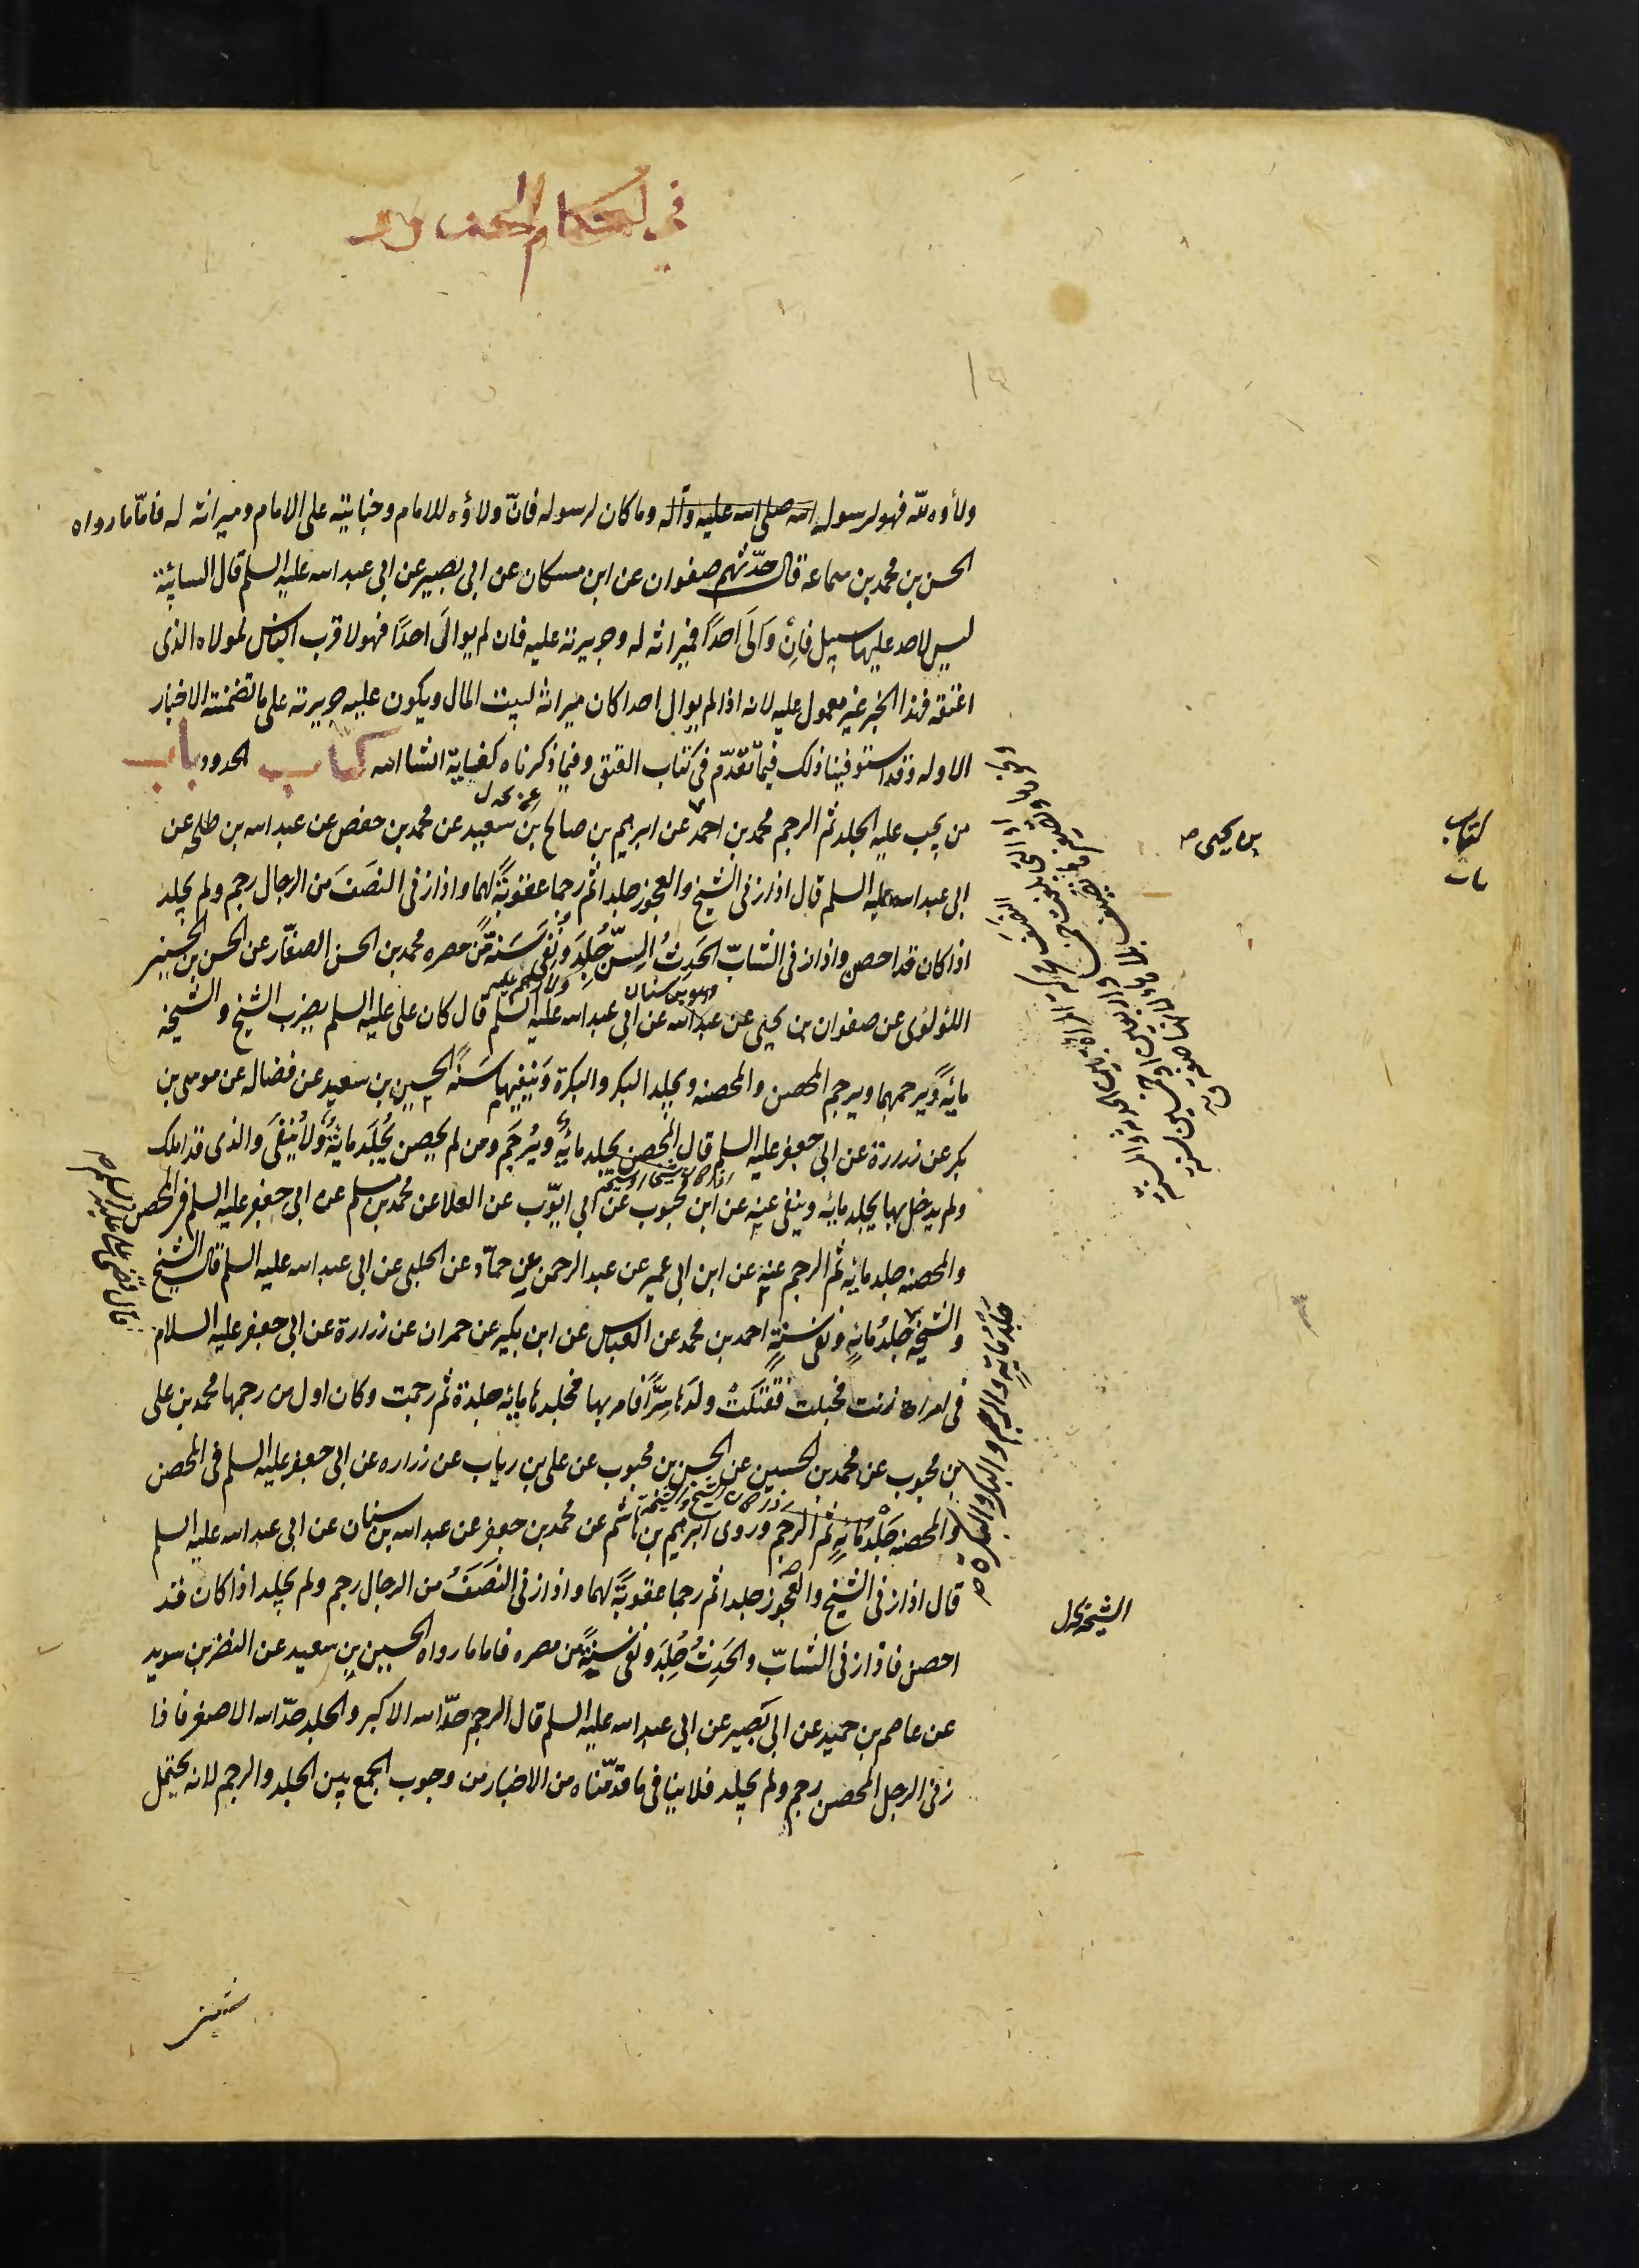 في احكام الحدود
ولاؤه لله فهو لرسول الله صلى الله عليه وآله وما كان لرسوله فانّ ولاؤه للامام وجنايته على الامام وميراثه له فامّا ما رواه
الحسن بن محمد بن سماعة قال حدّثهم صفوان عن ابن مسكان عن ابى بصير عن ابى عبد الله عليه السلم قال السائبة
ليس لاحد عليها سبيل فان وَالَى احدًا فميراثه له وجريرته عليه فان لم يوالَ احدًا فهو لاقرب الناس لمولاه الذى
اعتقه فهذا الخبر غير معمول عليه لانه اذا لم يوال احدا كان ميراثه لبيت المال ويكون عليه جريرته على ما تضمنته الاخبار
الاوله وقد استوفينا ذلك فيما تقدّم فى كتاب العتق وفيما ذكرناه كفاية انشا الله كتاب الحدود باب
من يجب عليه الجلد ثم الرجم محمد بن احمد عن ابرهيم بن صالح بن سعيد عن محمد بن حفص عن عبد الله بن طلحه عن
ابى عبد الله عليه السلم قال اذا زنى الشيخ والعجوز جلدا ثم رجما عقوبةً لهما واذا زنى النصَفَ من الرجال رجم ولم يجلد
اذا كان قد احصن واذا زنى الشابّ الحَدِثُ السِنّ جُلِدَ ونُفى سَنَةً من مصره محمد بن الحسن الصفّار عن الحسن بن الحسين
اللؤلؤى عن صفوان بن يحيى عن عبد الله عن ابى عبد الله عليه السلم قال كان على عليه السلم يضرب الشيخ والشيخة
وهو بن سنان
مائةً ويرجمهما ويرجم المحصن والمحصنه ويجلد البكر والبكرة وينفيهما سَنَةً الحسين بن سعيد عن فضاله عن موسى بن
بكر عن زرارة عن ابى جعفر عليه السلم قال المحصن يجلد مائةً ويُرجَم ومن لم يحصن يُجلَد مايةً ولا يُنفَى والذى قد املك
ولم يدخل بها يجلد مائه وينفى عنه عن ابن محبوب عن ابى ايّوب عن العلا عن محمد بن مسلم عن ابى جعفر عليه السلم فى المحصن
والمحصنه جلد مائه ثم الرجم عنه عن ابن ابى عمير عن عبد الرحمن عن حمّاد عن الحلبى عن ابى عبد الله عليه السلم قال الشيخ
والشيخة جلدُ مائةٍ ونفى سَنةٍ احمد بن محمد عن العباس عن ابن بكير عن حمران عن زرارة عن ابى جعفر عليه السلام
فى امراة زنت فحبلت فقتلت ولدها سِرًّا فامر بها فجلدها مائه جلدة ثم رجمت وكان اول من رجمها محمد بن على
بن محبوب عن محمد بن الحسين عن الحسن بن محبوب عن على بن رياب عن زراره عن ابى جعفر عليه السلم فى المحصن
والمحصنه جَلدُ مائةٍ ثم الرجم وروى ابرهيم بن هاشم عن محمد بن جعفر عن عبد الله بن سنان عن ابى عبد الله عليه السلم
قال اذا زنى الشيخ والعجوز جلدا ثم رجما عقوبةً لهما واذا زنى النصَفُ من الرجال رجم ولم يجلد اذا كان قد
احصن فاذا زنى الشابّ والحَدِثُ جُلِدَ ونفى سَنةً من مصره فاما ما رواه الحسين بن سعيد عن النضر بن سويد
عن عاصم بن حميد عن ابى بَصير عن ابى عبد الله عليه السلم قال الرجم حدّ الله الاكبر والجلد حدّ الله الاصغر فاذا
زنى الرجل المحصن رجم ولم يجلد فلا ينافى ما قدّمناه من الاخبار من وجوب الجمع بين الجلد والرجم لانه يحتمل
بن يحيى
كتاب
باب
جَلدُ مائةٍ والرجم والبكر والبكرة
قال قضى على عليه السلم
الشيخة